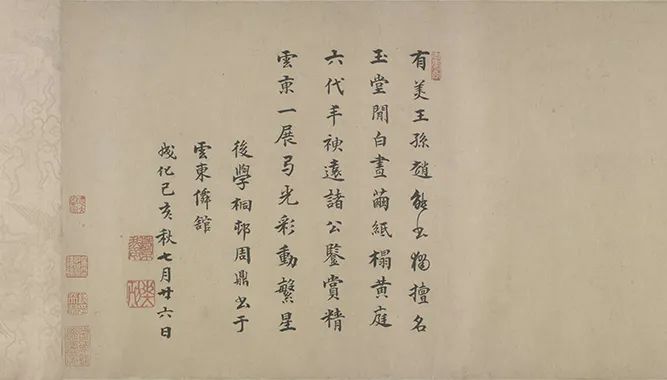 有美王孫趙能書獨擅名
玉堂閒白晝繭紙榻黃庭
六代羊遠諸公鑒賞精
雲東一展弓光彩動繁星
後學桐邨周鼎書于
雲東僊館
成化己亥秋七月廿六日